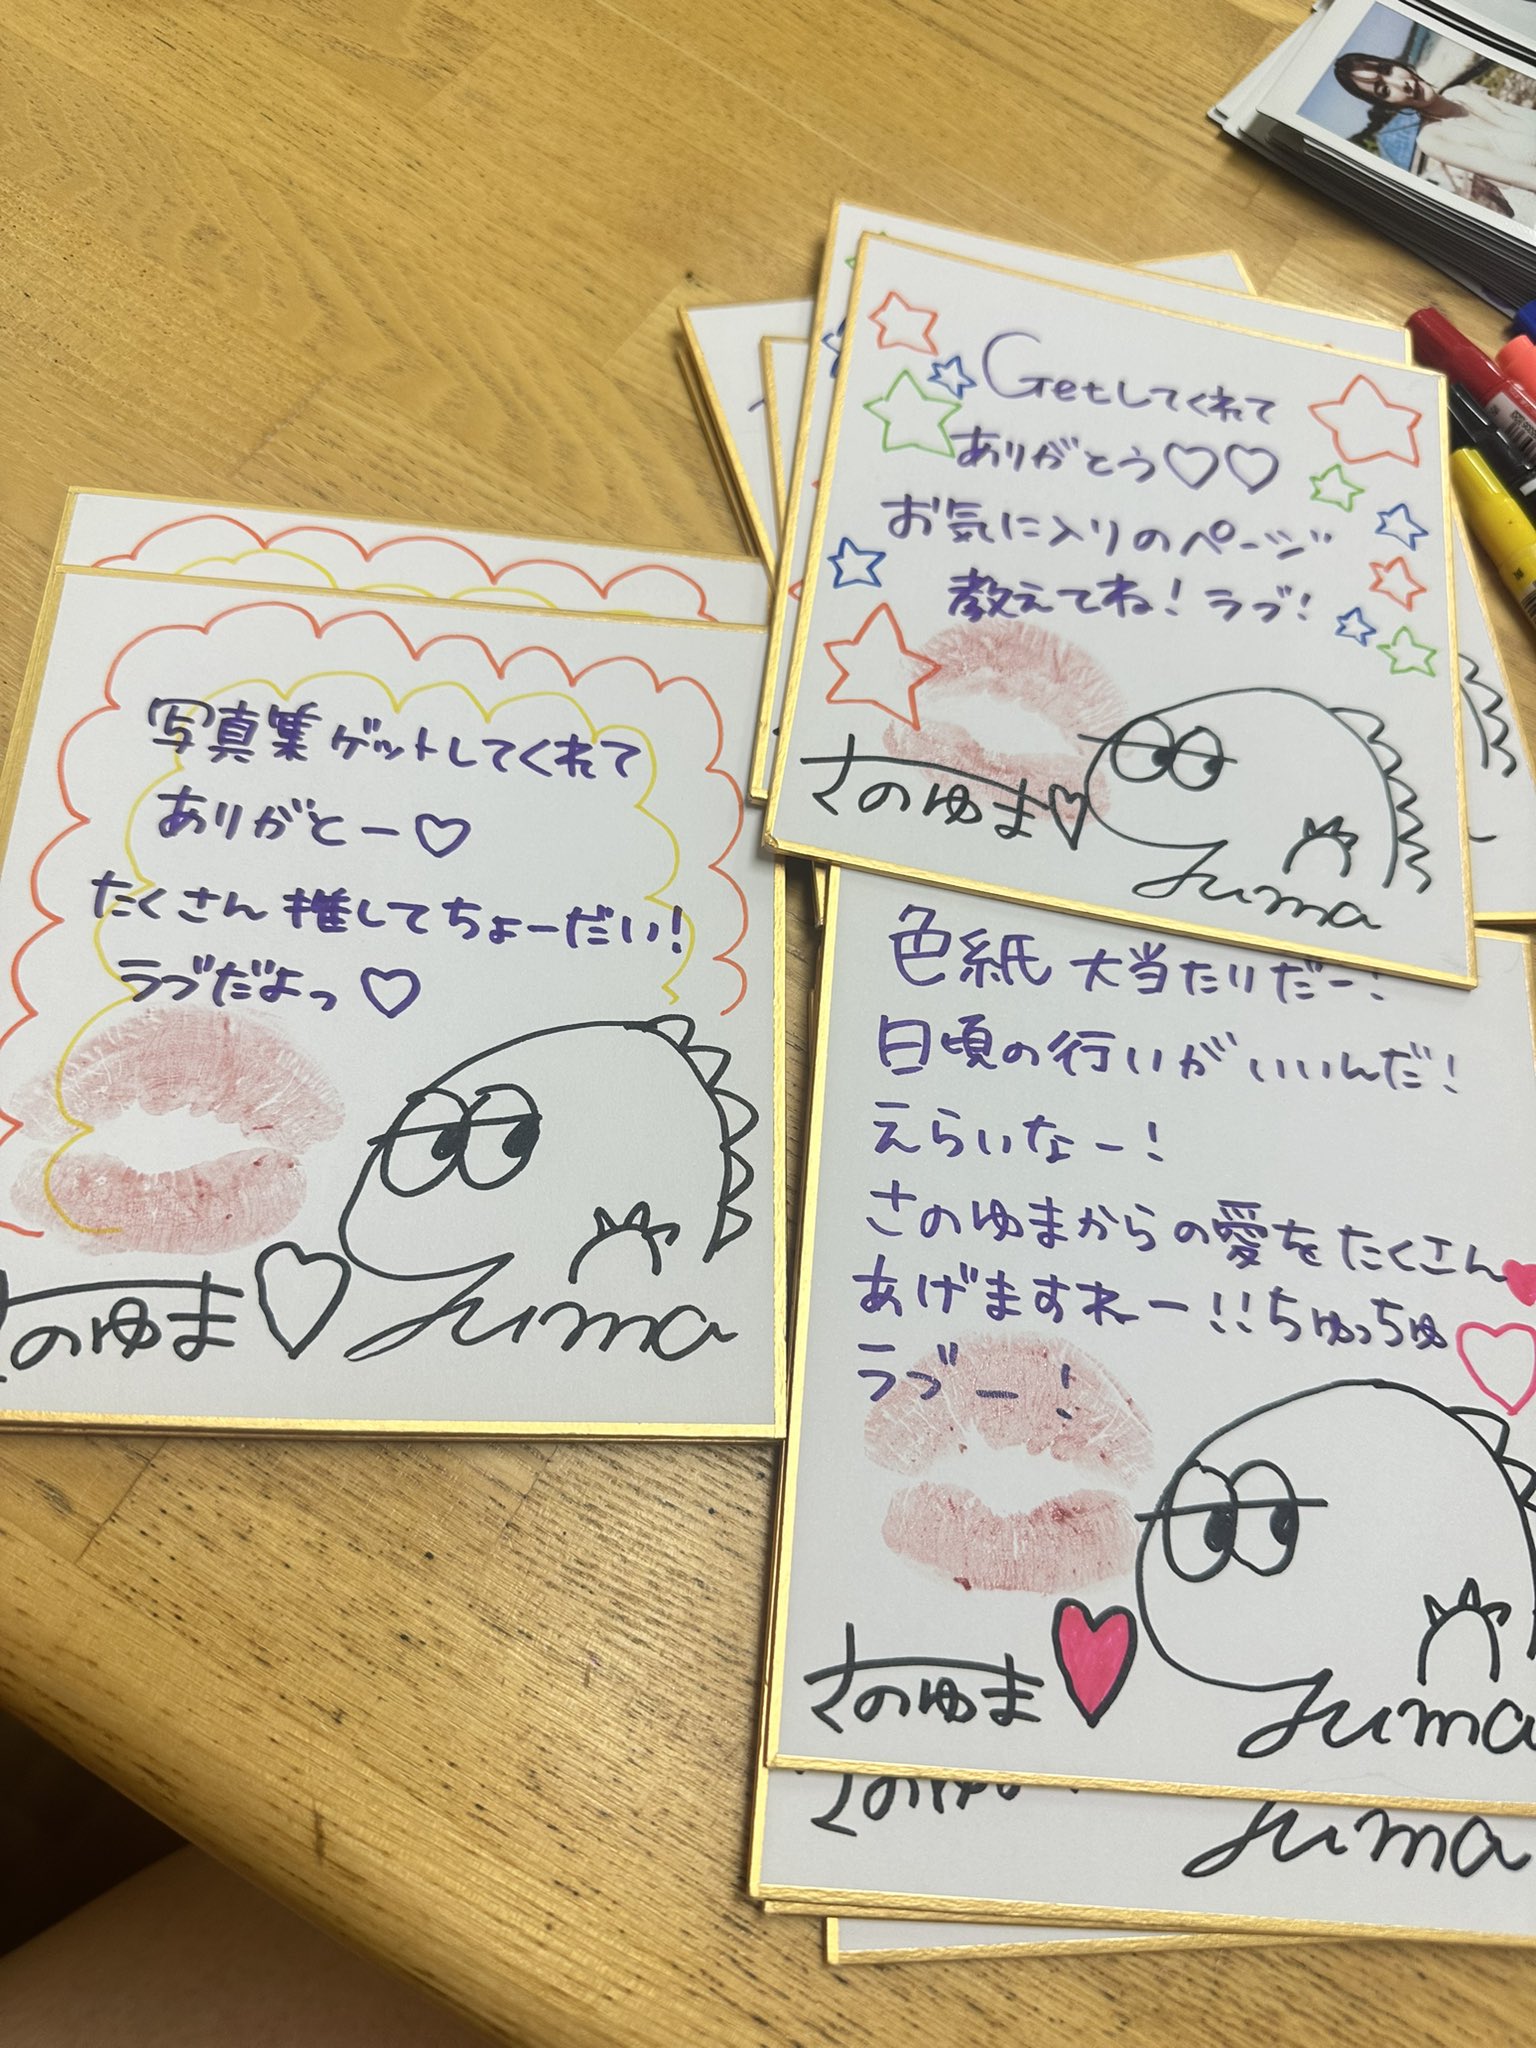 写真集ゲットしてくれて
ありがとー♡
たくさん推してちょーだい!
ラブだよっ♡
さのゆま♡
yuma
Getしてくれて
ありがとう♡♡
お気に入りのページ
教えてね!ラブ!
さのゆま♡
yuma
色紙大当たりだー!
日頃の行いがいいんだ!
えらいなー!
さのゆまからの愛をたくさん
あげますねー!!ちゅっちゅ
ラブー!
さのゆま
yuma
さのゆま
yuma